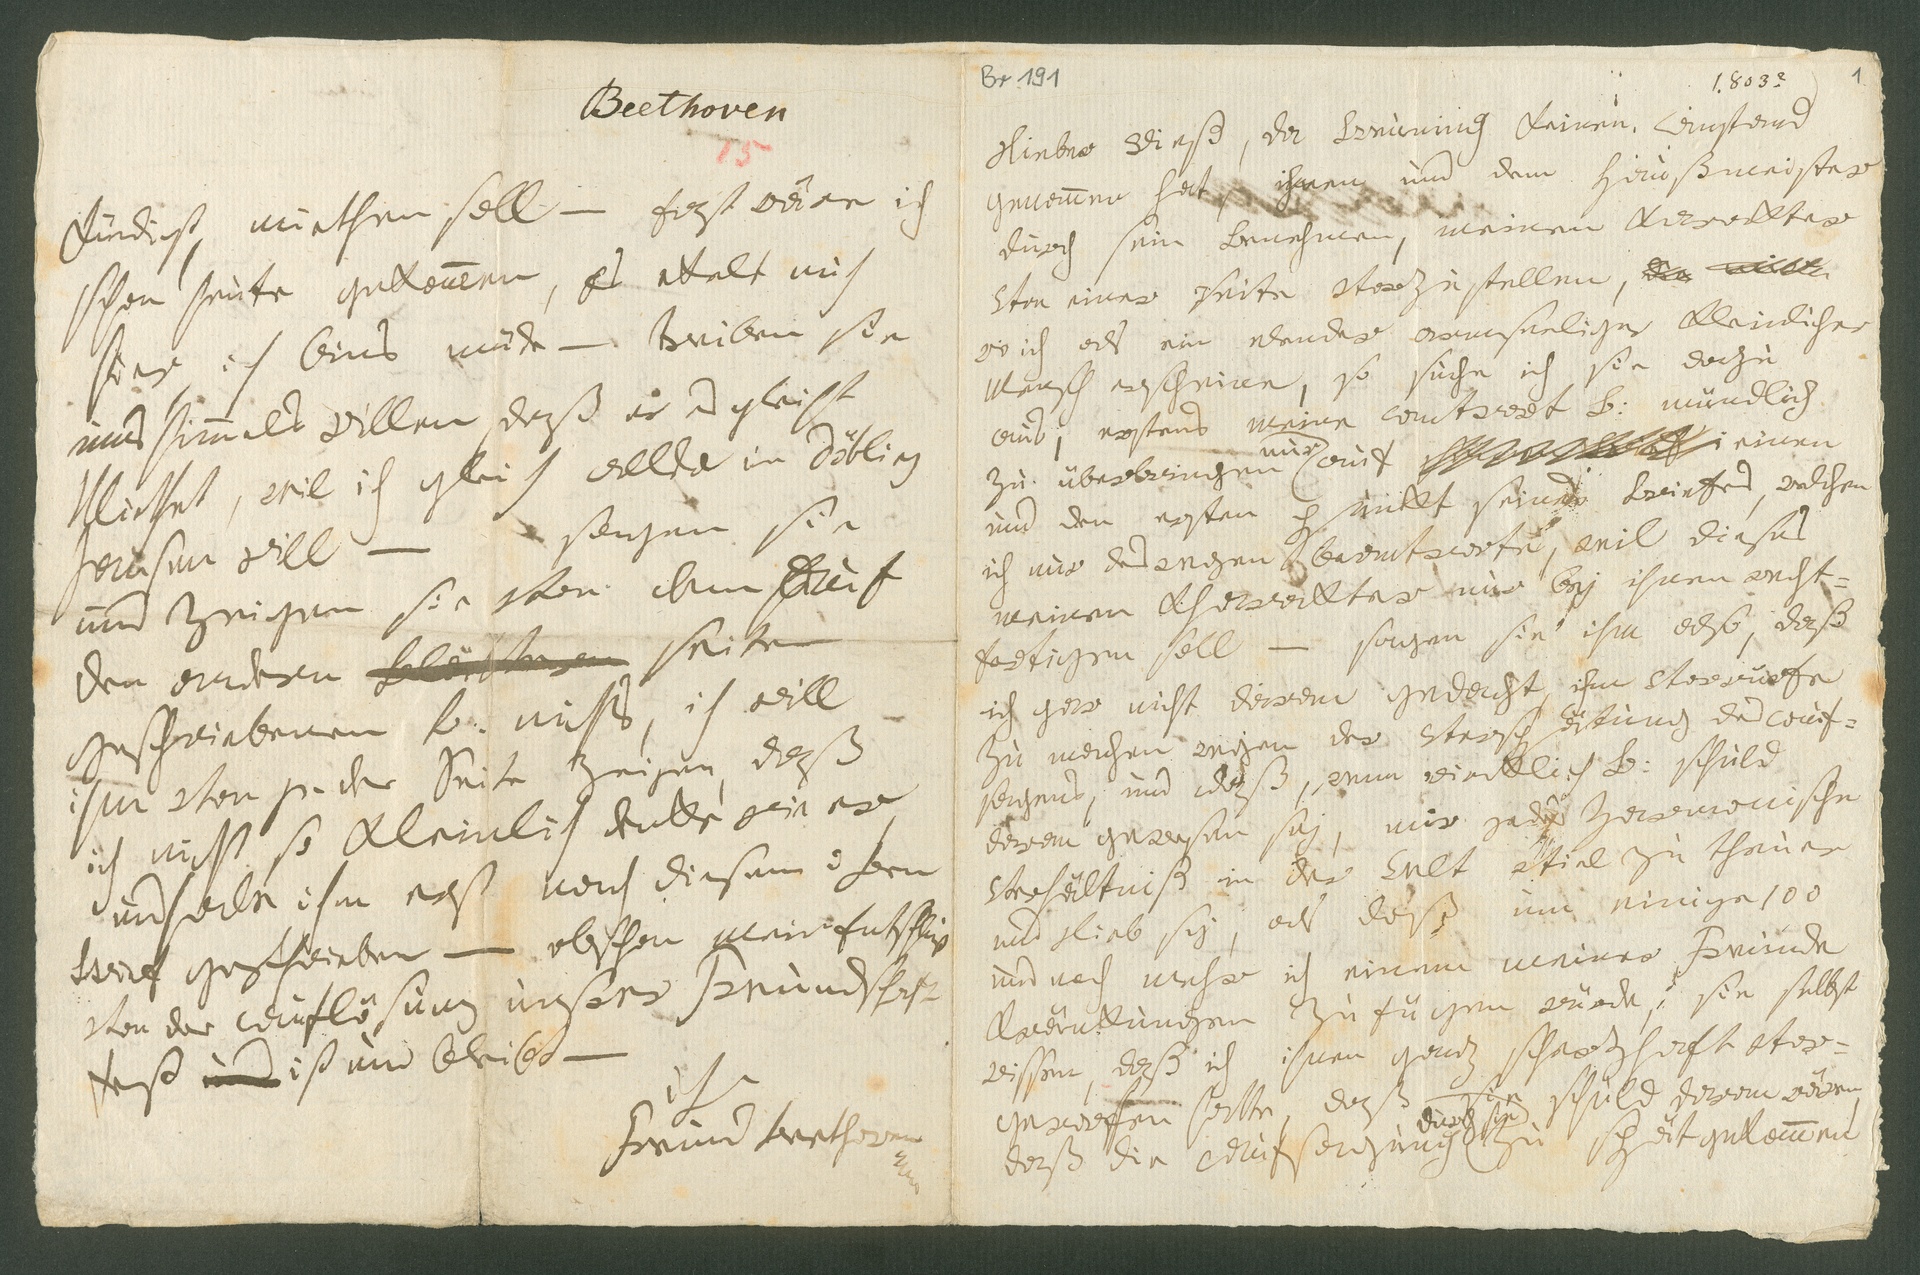 Br. 191
1.803?
1
Lieber Rieß, da Breuning keinen Anstand
genommen hat ihnen und dem Haußmeister
durch sein Benehmen, meinen Karackter
von einer seite vorzustellen,
wo ich als ein elender armseeliger kleinlicher
Mensch erscheine, so suche ich sie dazu
aus, erstens meine antwort B: mündlich
zu überbringen nur auf einen
und den ersten punkt seines briefes, welchen
ich nur deswegen beantworte, weil dieses
meinen Charackter nur bey ihnen recht=
fertigen soll — sagen sie ihm also, daß
ich gar nicht daran gedacht, ihm vorwürfe
zu machen wegen der verspätung des auf=
sagens, und daß, wenn wirklich B: schuld
daran gewesen sey, mir jedes Harmonische
verhältniß in der Welt viel zu theuer
und lieb sey, als daß um einige 100
und noch mehr ich einem meiner Freunde
Kränkungen zufügen würde, sie selbst
wissen, daß ich ihnen ganz scherzhaft vor=
geworfen hatte, daß sie schuld daran wären,
daß die aufsagung durch sie zu spät gekommen
Beethoven
15
findest, miethen soll — fast wäre ich
schon heute gekommen, es ekelt mich
hier, ich bins müde — treiben sie
ums himmels willen daß er es gleich
Miethet, weil ich gleich allda in Döbling
hausen will — sagen sie
und zeigen sie von dem auf
der andern seite
geschriebenen B. nichts, ich will
ihm von jeder Seite zeigen, daß
ich nicht so kleinlich denke wie er
und habe ihm erst nach diesem
brief geschrieben — obschon mein Entschluß
von der auflösung unsrer Freundschaft
fest ist und bleibt —
ihr
Freund Beethoven